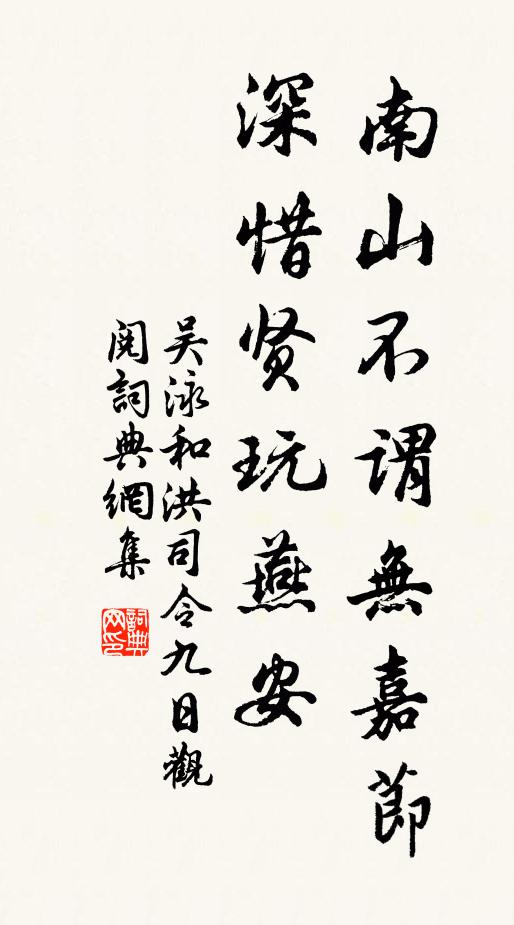 南山不谓無嘉節
深惜贤玩燕安
吴泳和洪司令九日觀
阅詞典網集
詞典网印